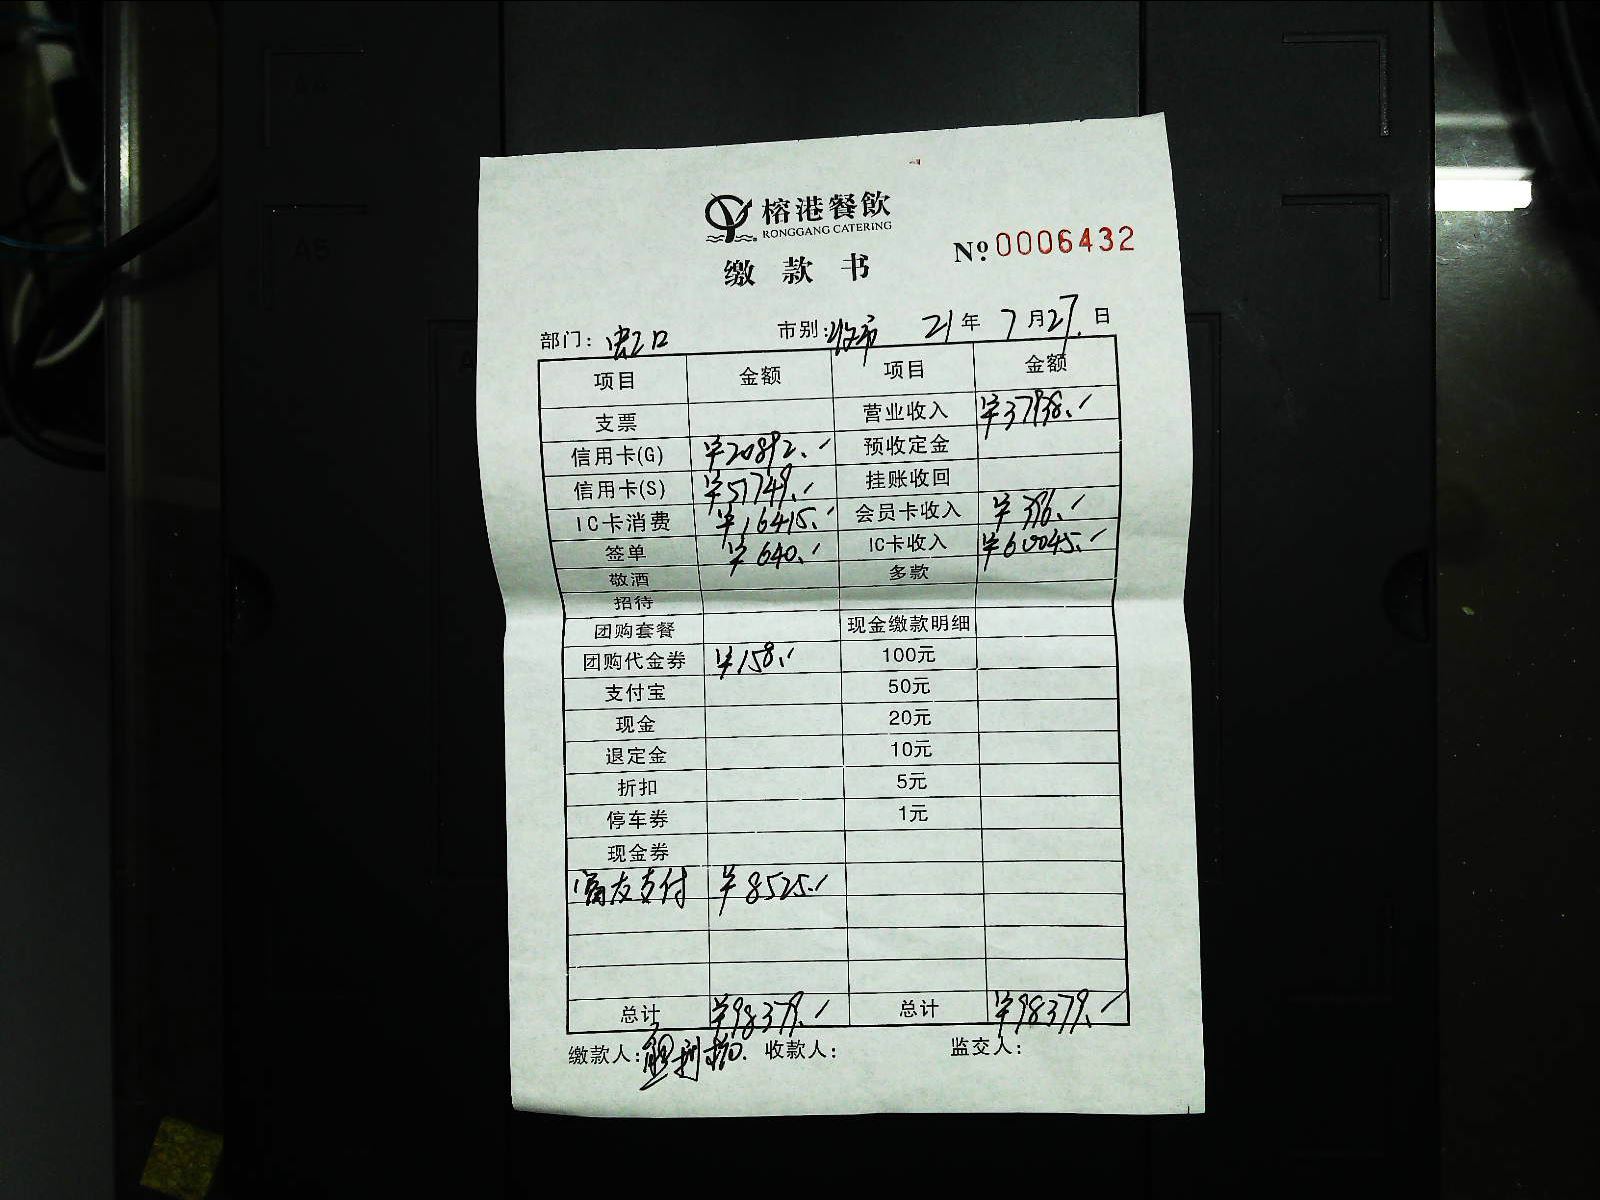 榕港餐飲
RONGGANG CATERING
缴款书
Nº 0006432
部门：虹口 市别： 21年 7月27日
项目 金额 项目 金额
支票 营业收入 ¥37938.-
信用卡(G) ¥20892.- 预收定金
信用卡(S) ¥51749.- 挂账收回
IC卡消费 ¥16415.- 会员卡收入 ¥396.-
签单 ¥640.- IC卡收入 ¥60045.-
敬酒 多款
招待
团购套餐 现金缴款明细
团购代金券 ¥158.- 100元
支付宝 50元
现金 20元
退定金 10元
折扣 5元
停车券 1元
现金券
富友支付 ¥8525.-
总计 ¥98379.- 总计 ¥98379.-
缴款人： 收款人： 监交人：